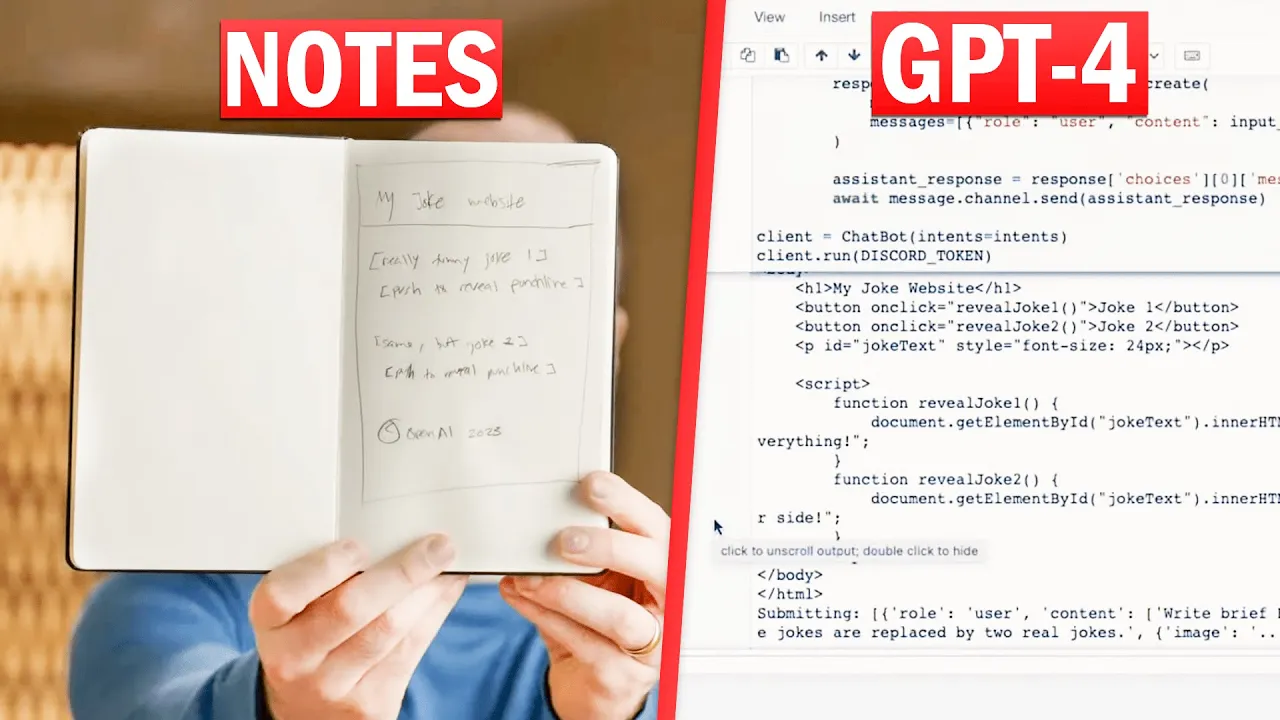 NOTES
My Joke website
[really funny joke 1]
[push to reveal punchline]
[same, but joke 2]
[push to reveal punchline]
OpenAI 2023
GPT-4
View Insert
create(
messages=[{"role": "user", "content": input_
)
assistant_response = response['choices'][0]['mes
await message.channel.send(assistant_response)
client = ChatBot(intents=intents)
client.run(DISCORD_TOKEN)
<h1>My Joke Website</h1>
<button onclick="revealJoke1()">Joke 1</button>
<button onclick="revealJoke2()">Joke 2</button>
<p id="jokeText" style="font-size: 24px;"></p>
<script>
function revealJoke1() {
document.getElementById("jokeText").innerHTM
verything!";
}
function revealJoke2() {
document.getElementById("jokeText").innerHTM
r side!";
}
click to unscroll output; double click to hide
</body>
</html>
Submitting: [{'role': 'user', 'content': ['Write brief
e jokes are replaced by two real jokes.', {'image': '..